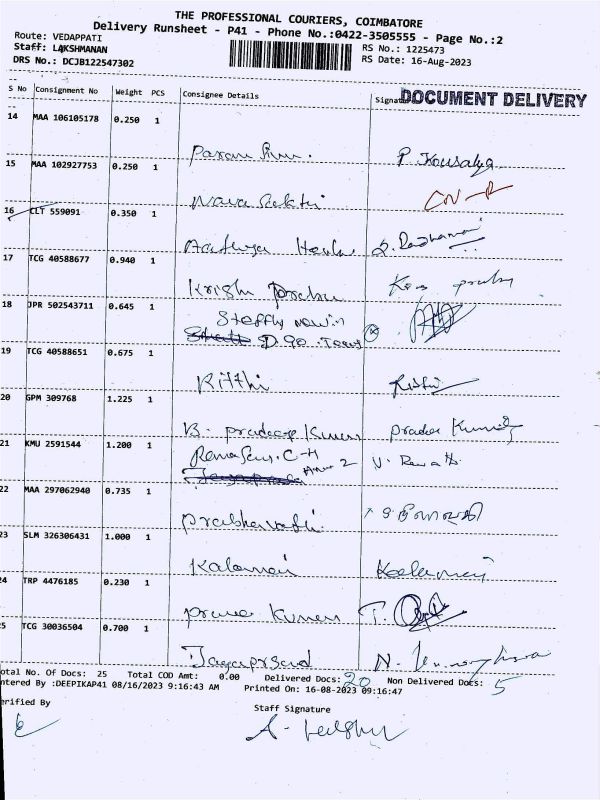 THE PROFESSIONAL COURIERS, COIMBATORE
Delivery Runsheet - P41 - Phone No.:0422-3505555 - Page No.:2
Route: VEDAPPATI
Staff: LAKSHMANAN
DRS No.: DCJB122547302
RS No.: 1225473
RS Date: 16-Aug-2023
S No Consignment No Weight PCS Consignee Details Signat
DOCUMENT DELIVERY
14 MAA 106105178 0.250 1
P. Kousalya
15 MAA 102927753 0.250 1
Nava Sakthi
16 CLT 559091 0.350 1
17 TCG 40588677 0.940 1
Krish Prabu
18 JPR 502543711 0.645 1
19 TCG 40588651 0.675 1
Rithi
20 GPM 309768 1.225 1
B. pradeep Kumar
21 KMU 2591544 1.200 1
22 MAA 297062940 0.735 1
Prabhavathi
23 SLM 326306431 1.000 1
Kalamani Kalamani
24 TRP 4476185 0.230 1
25 TCG 30036504 0.700 1
Jayaprasad
otal No. Of Docs: 25 Total COD Amt: 0.00 Delivered Docs: 20 Non Delivered Docs: 5
ntered By :DEEPIKAP41 08/16/2023 9:16:43 AM Printed On: 16-08-2023 09:16:47
erified By Staff Signature